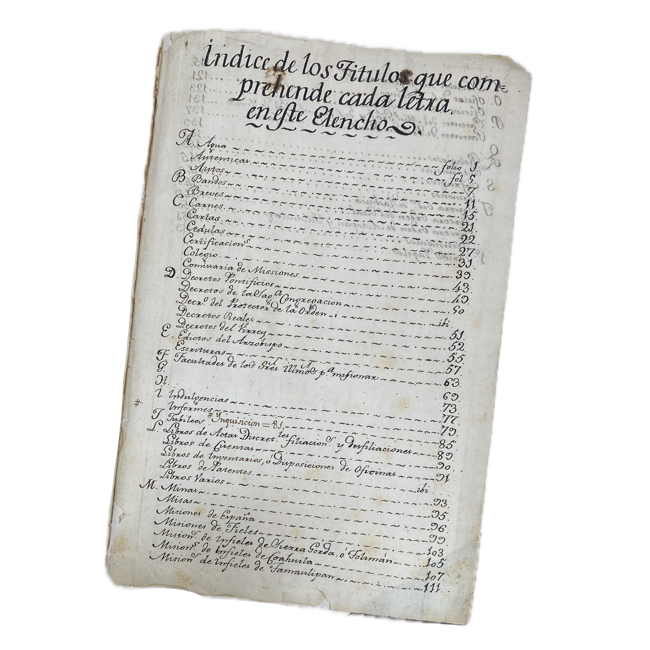 Índice de los Titulos que com-
prehende cada letra
en este Elencho.
A. Agua folio 1
Autenticas fol. 5
Autos 7
B. Bandos 11
Breves 15
C. Carnes 21
Cartas 22
Cedulas 27
Certificacion.s 31
Colegio 39
Comisaria de Missiones 43
D. Decretos Pontificios 49
Decretos de la Sag.a Congregacion 50
Decr.s del Protector de la Orden ibi
Decretos Reales 51
Decretos del Virrey 52
E. Edictos del Arzobispo 55
Escrituras 57
F. Facultades de los Sres Illmos p.a misionar 63
G.
H.
I. Indulgencias 69
Informes 73
# Ynquisicion = 81
J. Jubileos 77
L. Libros de Actas Discret.les filiacion.s y desfiliaciones 79
Libros de Cuentas 85
Libros de Inventarios, ó Disposiciones de Oficinas 89
Libros de Patentes 90
Libros Varios 91
M. Minas ibi
Misas 93
Misiones de España 95
Misiones de Fieles 96
Mision.s de Infieles de Sierra Gorda, ó Tolimán 99
Mision.s de Infieles de Coahuila 103
Mision.s de Infieles de Tamaulipan 105
107
111